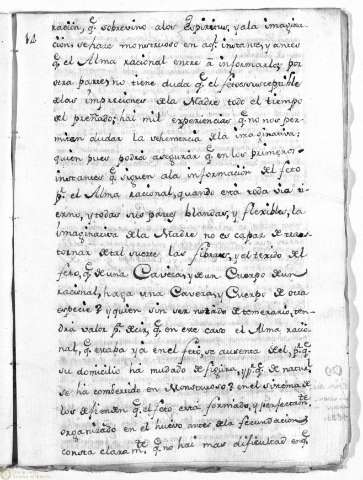 ración, q.e sobrevino alos Espiritus, y ala imagina-
cion, se haze monstruoso en aq.l instante, y antes
q.e el Alma racional entre à informarlo; por
otra parte, no tiene duda q.e el fetus es susceptible
de las impreciones de la Madre todo el tiempo
del preñado; hai mil experiencias q.e no nos per-
miten dudar la vehemencia de la imaginativa;
quien pues podrá asegurar q.e en los primeros
instantes q.e siguen ala informacion del feto
p.r el Alma racional, quando está toda via ti-
erno, y todas sus partes blandas, y flexibles, la
imaginativa de la Madre no es capaz de tras-
tornar de tal suerte las fibras, y el texido del
feto, q.e de una Caveza, y de un Cuerpo de un
racional, haga una Caveza, y Cuerpo de otra
especie? y quien sin ser notado de temerario, ten-
drá valor p.a decir, q.e en este caso el Alma racio-
nal, q.e estaba yá en el feto, se ausenta de el, p.r q.e
su domicilio ha mudado de figura, y p.r q.e de natural
se ha combertido en Monstruoso? en el sistema de
los defienden q.e el feto está formado, y perfectam.te
organizado en el huevo antes de la fecundacion
consta claram.te q.e no hai mas dificultad en q.e